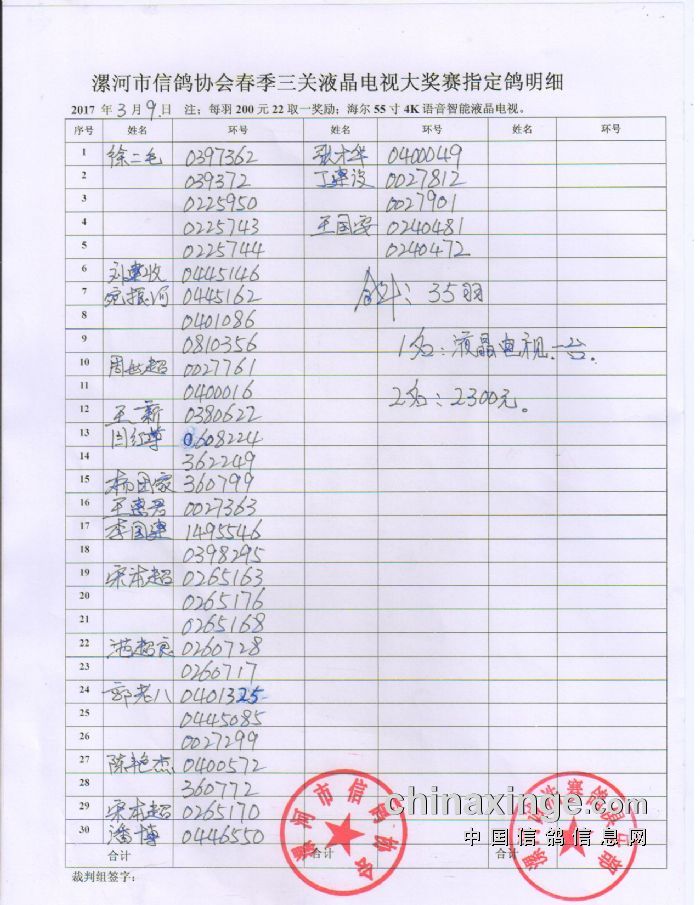 漯河市信鸽协会春季三关液晶电视大奖赛指定鸽明细
2017 年 3 月 9 日 注：每羽 200 元 22 取一奖励；海尔 55 寸 4K 语音智能液晶电视。
序号 姓名 环号 姓名 环号 姓名 环号
1 徐二毛 0397362 张才华 0400049
2 039372 丁建设 0027812
3 0225950 0027901
4 0225743 王国雯 0240481
5 0225744 0240472
6 刘建收 0445146
7 宛振河 0445162 合计：35羽
8 0401086
9 0810356 1名：液晶电视一台.
10 周世超 0027761
11 0400016 2名：2300元。
12 王新 0380622
13 0608224
14 362249
15 杨国家 360799
16 王惠君 0027363
17 李国建 1495546
18 0398295
19 宋本超 0265163
20 0265176
21 0265168
22 范超良 0260728
23 0260717
24 郭老八 0401325
25 0445085
26 0027299
27 陈艳杰 0400572
28 360772
29 宋本超 0265170
30 潘博 0446550
合计 合计 合计
裁判组签字：
漯河市信鸽协会
chinaxinge.com
中国信鸽信息网